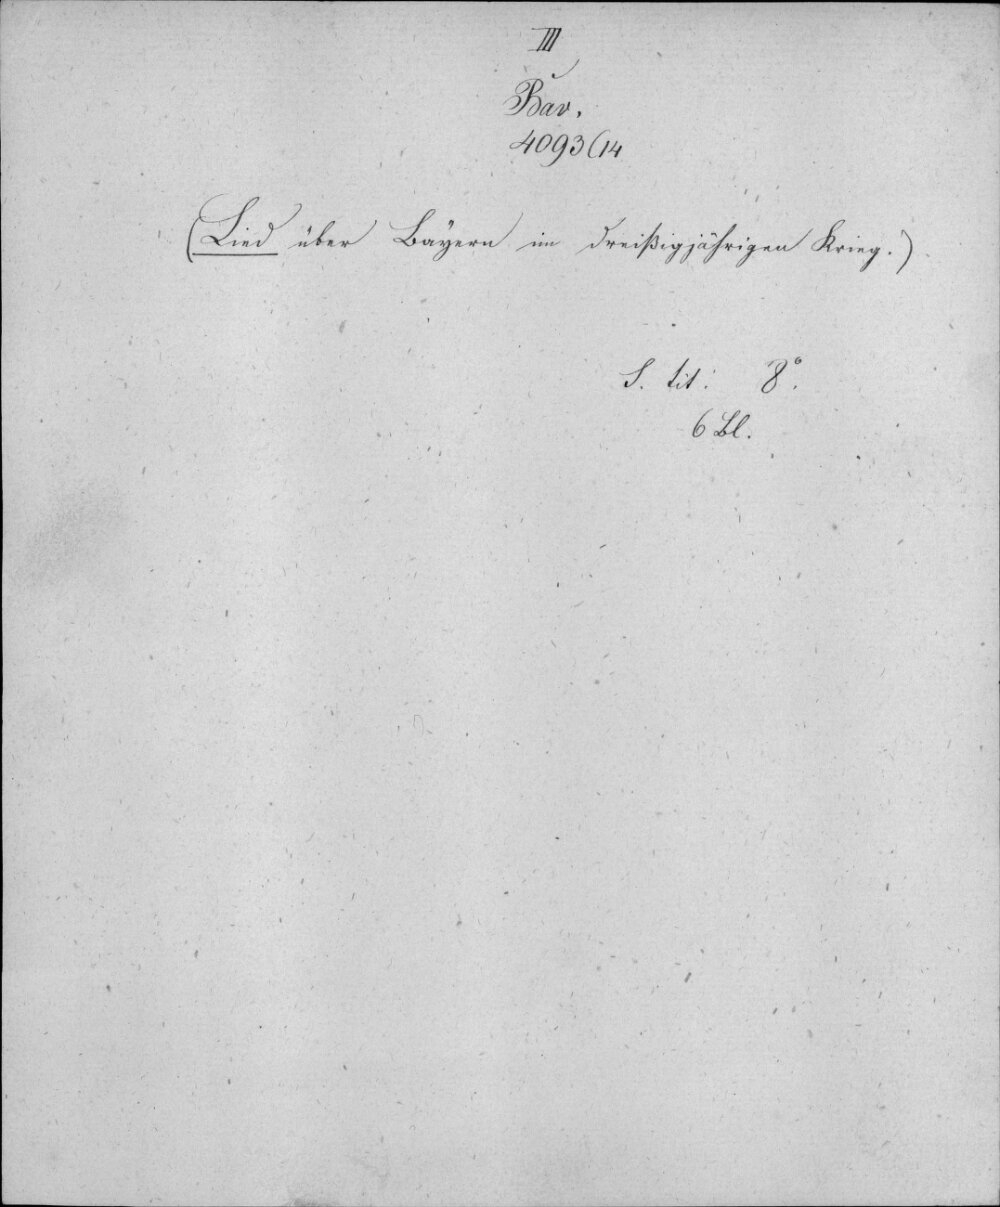 III
Bav.
4093(14
(Lied über Bayern im dreißigjährigen Krieg.)
S. tit: 8°.
6 Bl.